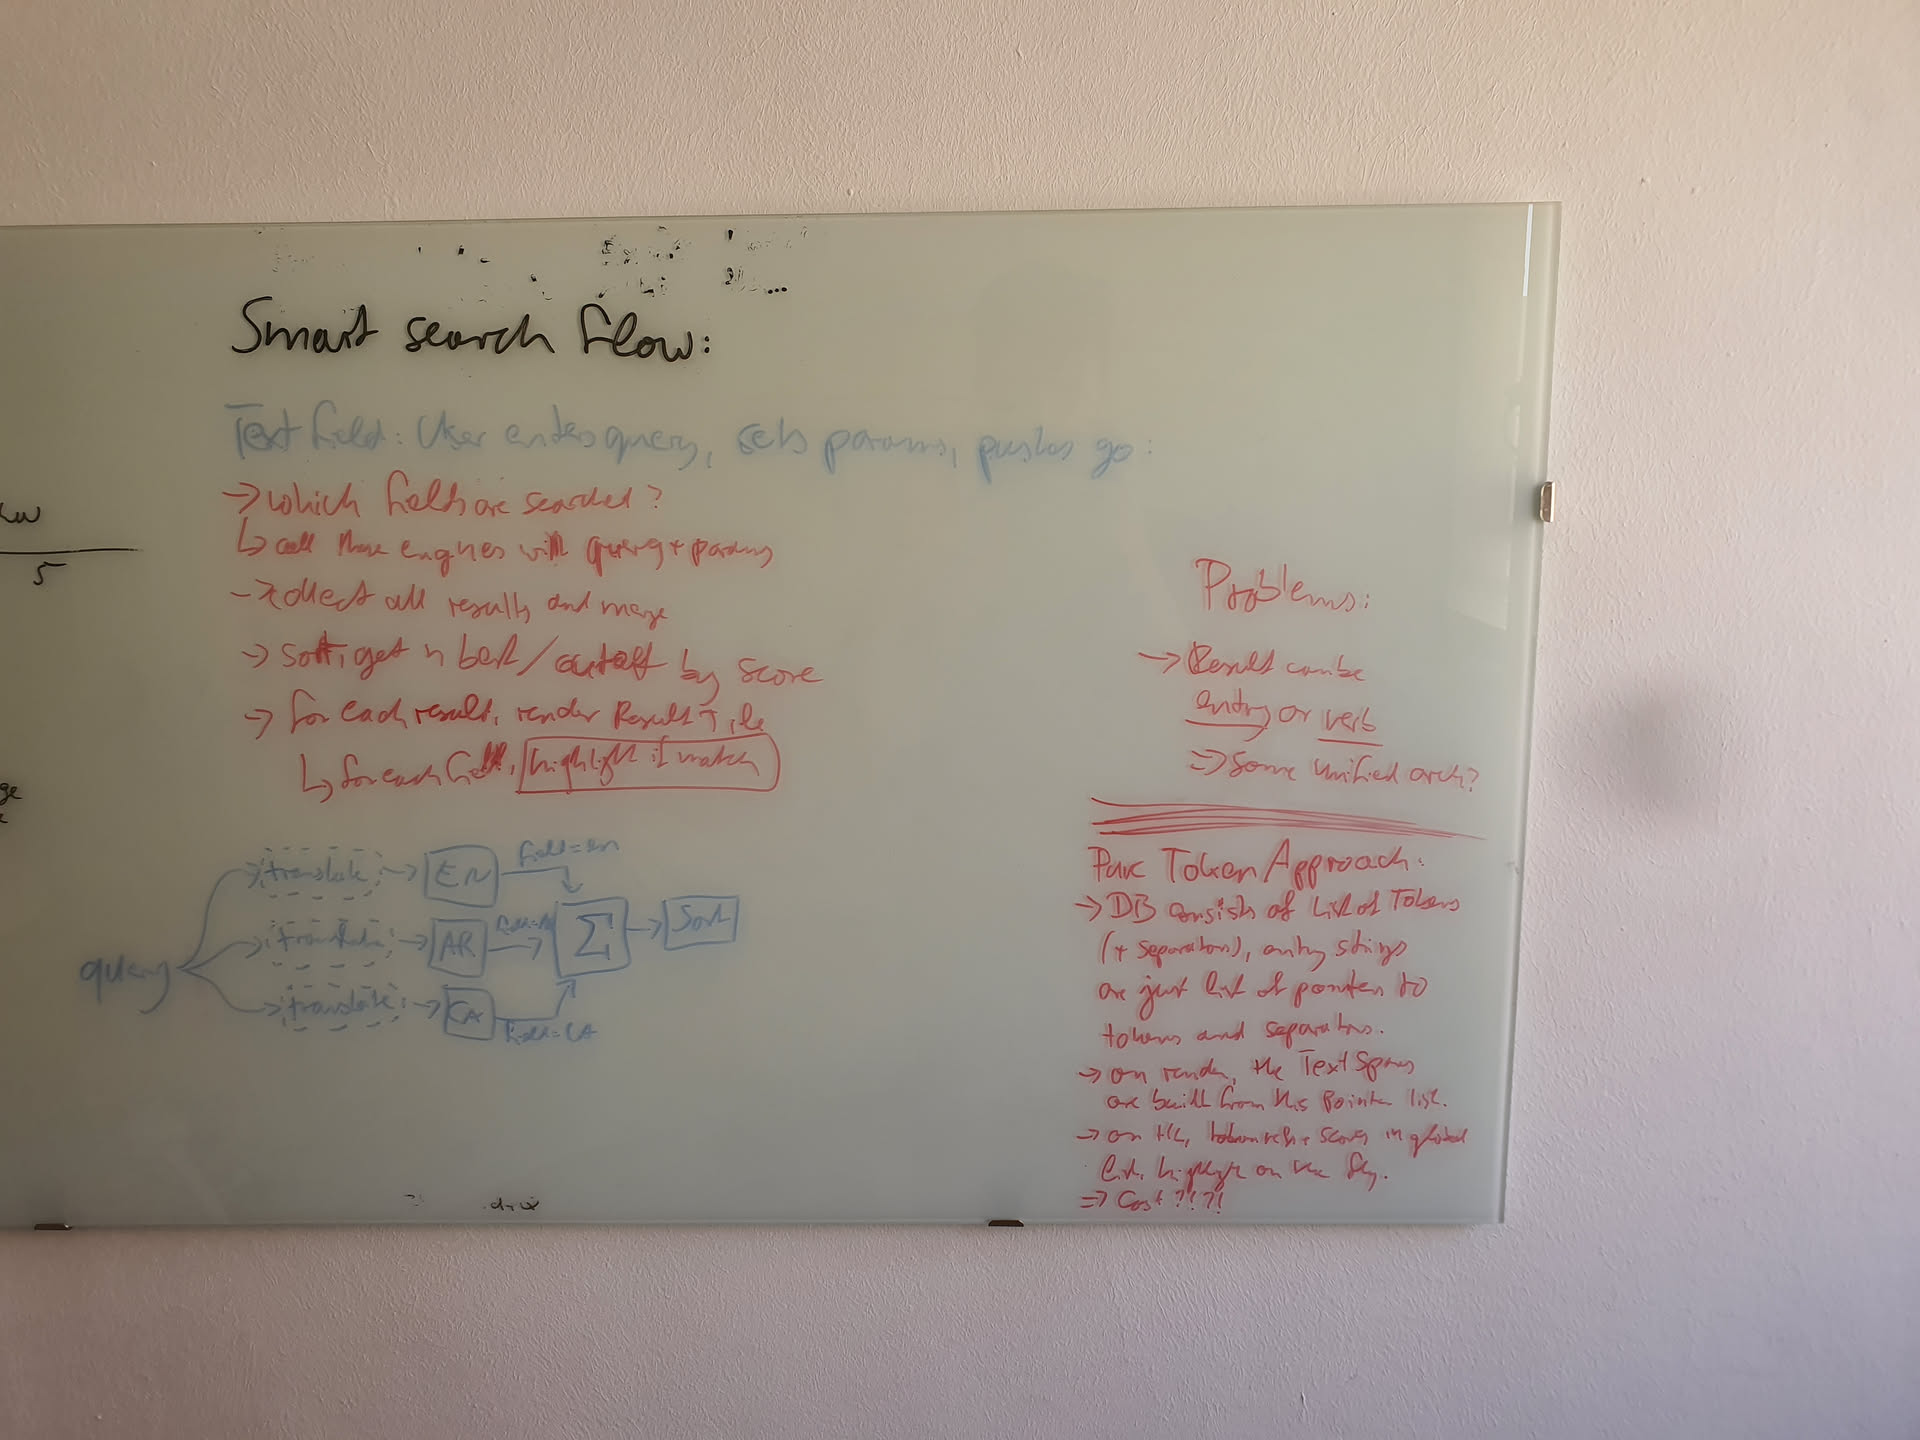 Smart search flow:
Text field: User enters query, sets params, pushes go:
→ which fields are searched?
↳ call these engines with query + params
→ collect all results and merge
→ sort, get n best / cutoff by score
→ for each result, render Result Tile
↳ for each field, highlight if match
query
translate → EN field=EN
translate → AR
translate → CA field=CA
Σ → Sort
Problems:
→ Result can be
entry or verb
⇒ some unified arch?
Pure Token Approach:
→ DB consists of list of Tokens
(+ separators), entry strings
are just list of pointers to
tokens and separators.
→ on render, the TextSpans
are built from this pointer list.
→ on HL, scores in global
list, highlight on the fly.
⇒ Cost?!?!
5
ge